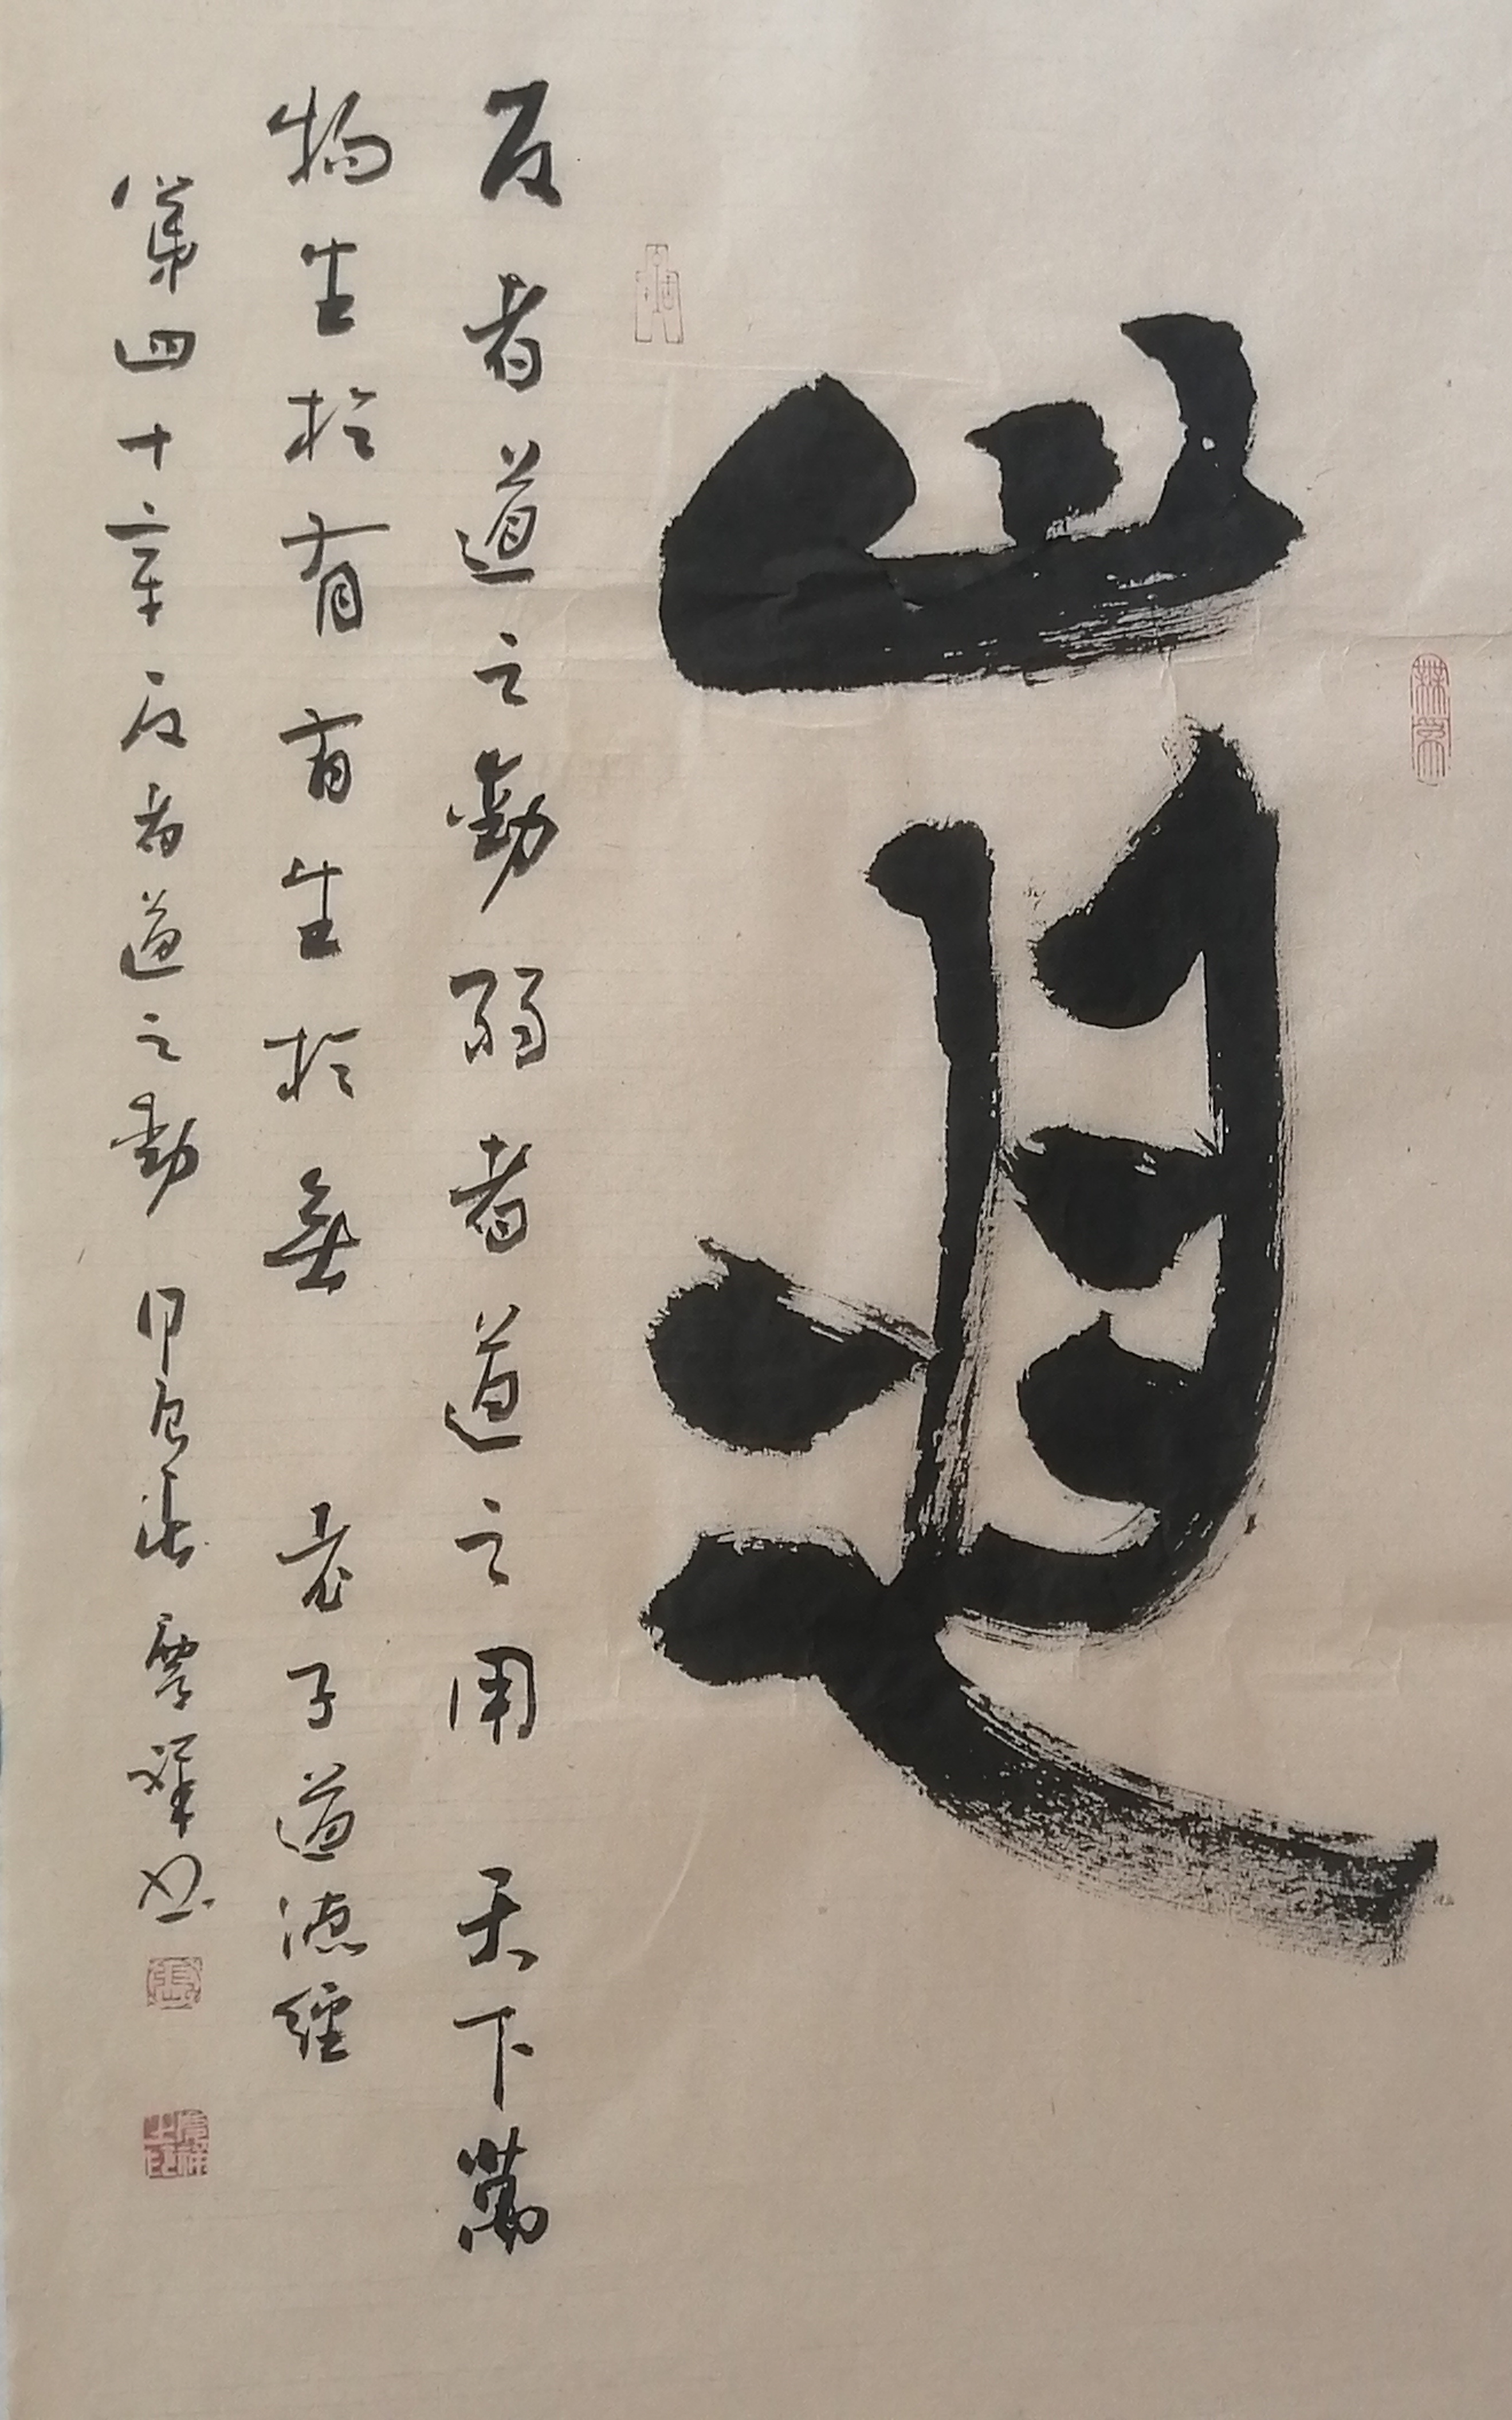 道
反者道之動弱者道之用天下萬
物生於有有生於無 老子道德經
第四十章反者道之動 甲辰春 雲祥書